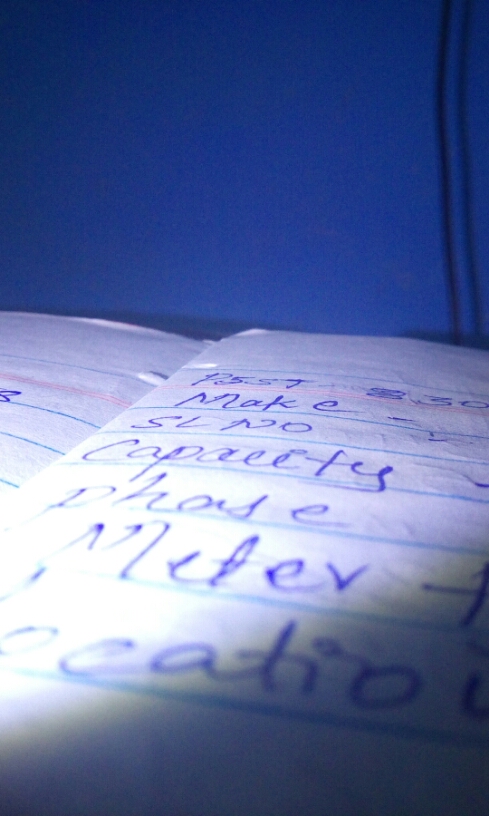 Make -
SL NO
Capacity -
phase
Meter
Locatio